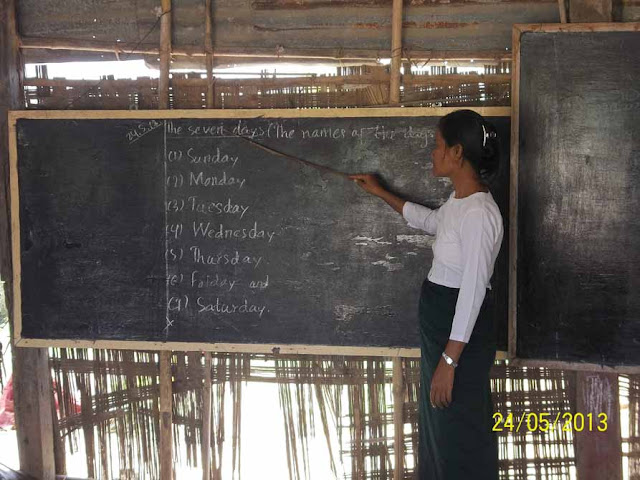 24.5.13
The seven days (The names of the days
(1) Sunday
(2) Monday
(3) Tuesday
(4) Wednesday
(5) Thursday.
(6) Friday and
(7) Saturday.
24/05/2013